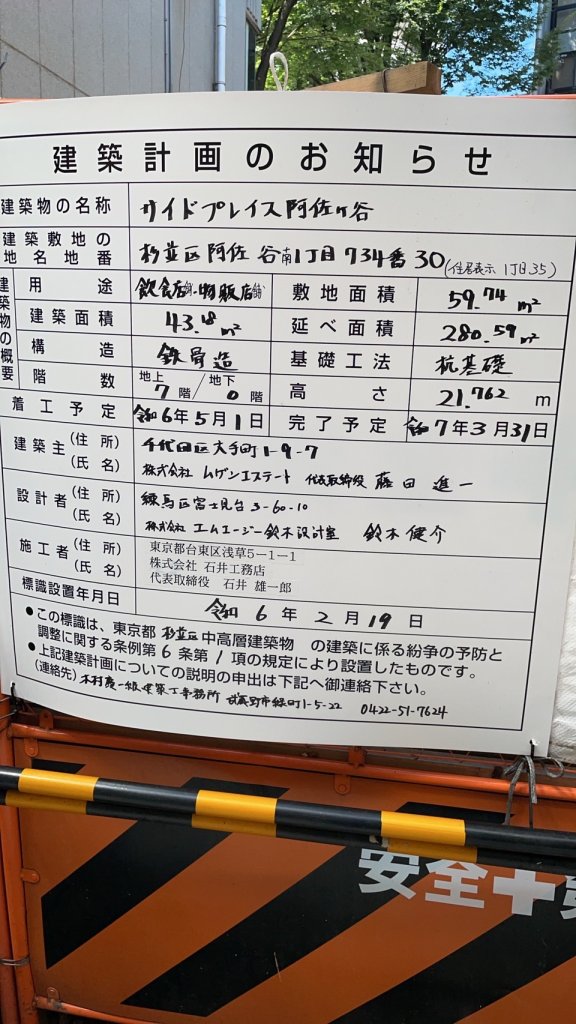 建築計画のお知らせ
建築物の名称 サイドプレイス阿佐ヶ谷
建築敷地の地名地番 杉並区阿佐谷南1丁目734番30(住居表示 1丁目35)
建築物の概要
用途 飲食店舗・物販店舗 敷地面積 59.74㎡
建築面積 43.18㎡ 延べ面積 280.59㎡
構造 鉄骨造 基礎工法 杭基礎
階数 地上7階/地下0階 高さ 21.762m
着工予定 令和6年5月1日 完了予定 令和7年3月31日
建築主(住所) 千代田区大手町1-9-7
(氏名) 株式会社 ムゲンエステート 代表取締役 藤田 進一
設計者(住所) 練馬区富士見台3-60-10
(氏名) 株式会社 エムエージー鈴木設計室 鈴木健介
施工者(住所) 東京都台東区浅草5-1-1
(氏名) 株式会社 石井工務店
代表取締役 石井 雄一郎
標識設置年月日 令和6年2月19日
●この標識は、東京都 杉並区 中高層建築物 の建築に係る紛争の予防と
調整に関する条例第6条第1項の規定により設置したものです。
●上記建築計画についての説明の申出は下記へ御連絡下さい。
(連絡先)木村慶一級建築士事務所 武蔵野市緑町1-5-22 0422-51-7624
安全✚